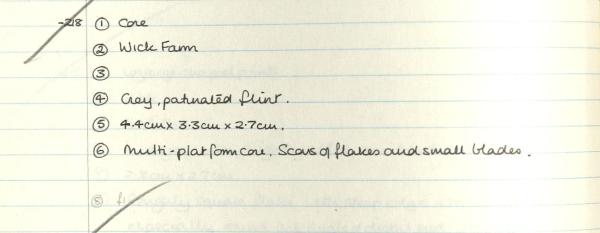 -218 ① Core
② Wick Farm
③
④ Grey, patinated flint.
⑤ 4.4cm x 3.3cm x 2.7cm.
⑥ Multi-platform core. Scars of flakes and small blades.